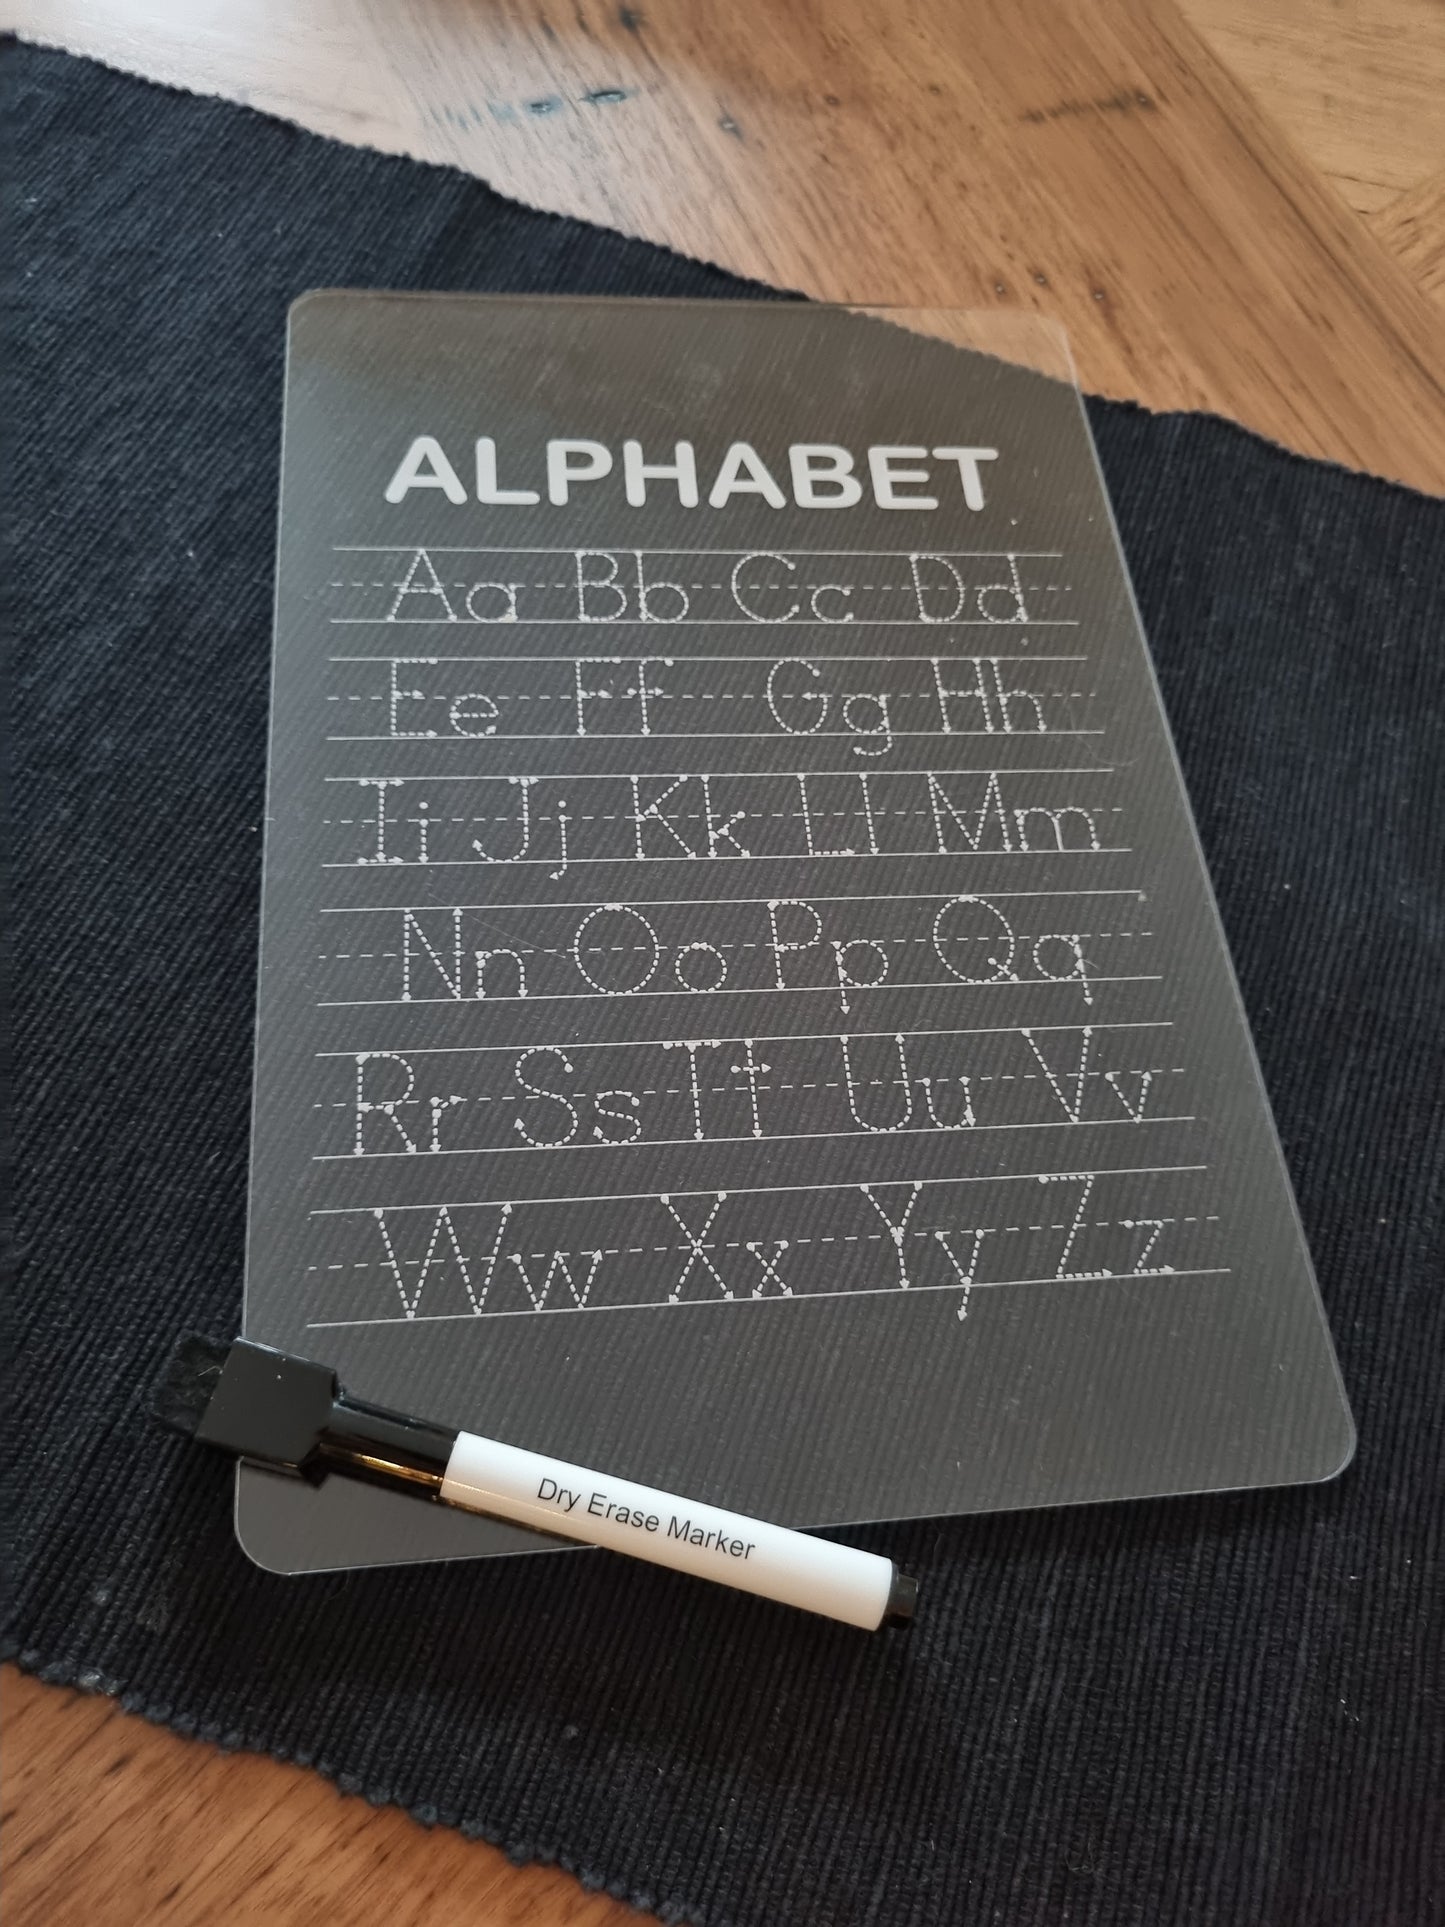 ALPHABET
Aa Bb Cc Dd
Ee Ff Gg Hh
Ii Jj Kk Ll Mm
Nn Oo Pp Qq
Rr Ss Tt Uu Vv
Ww Xx Yy Zz
Dry Erase Marker